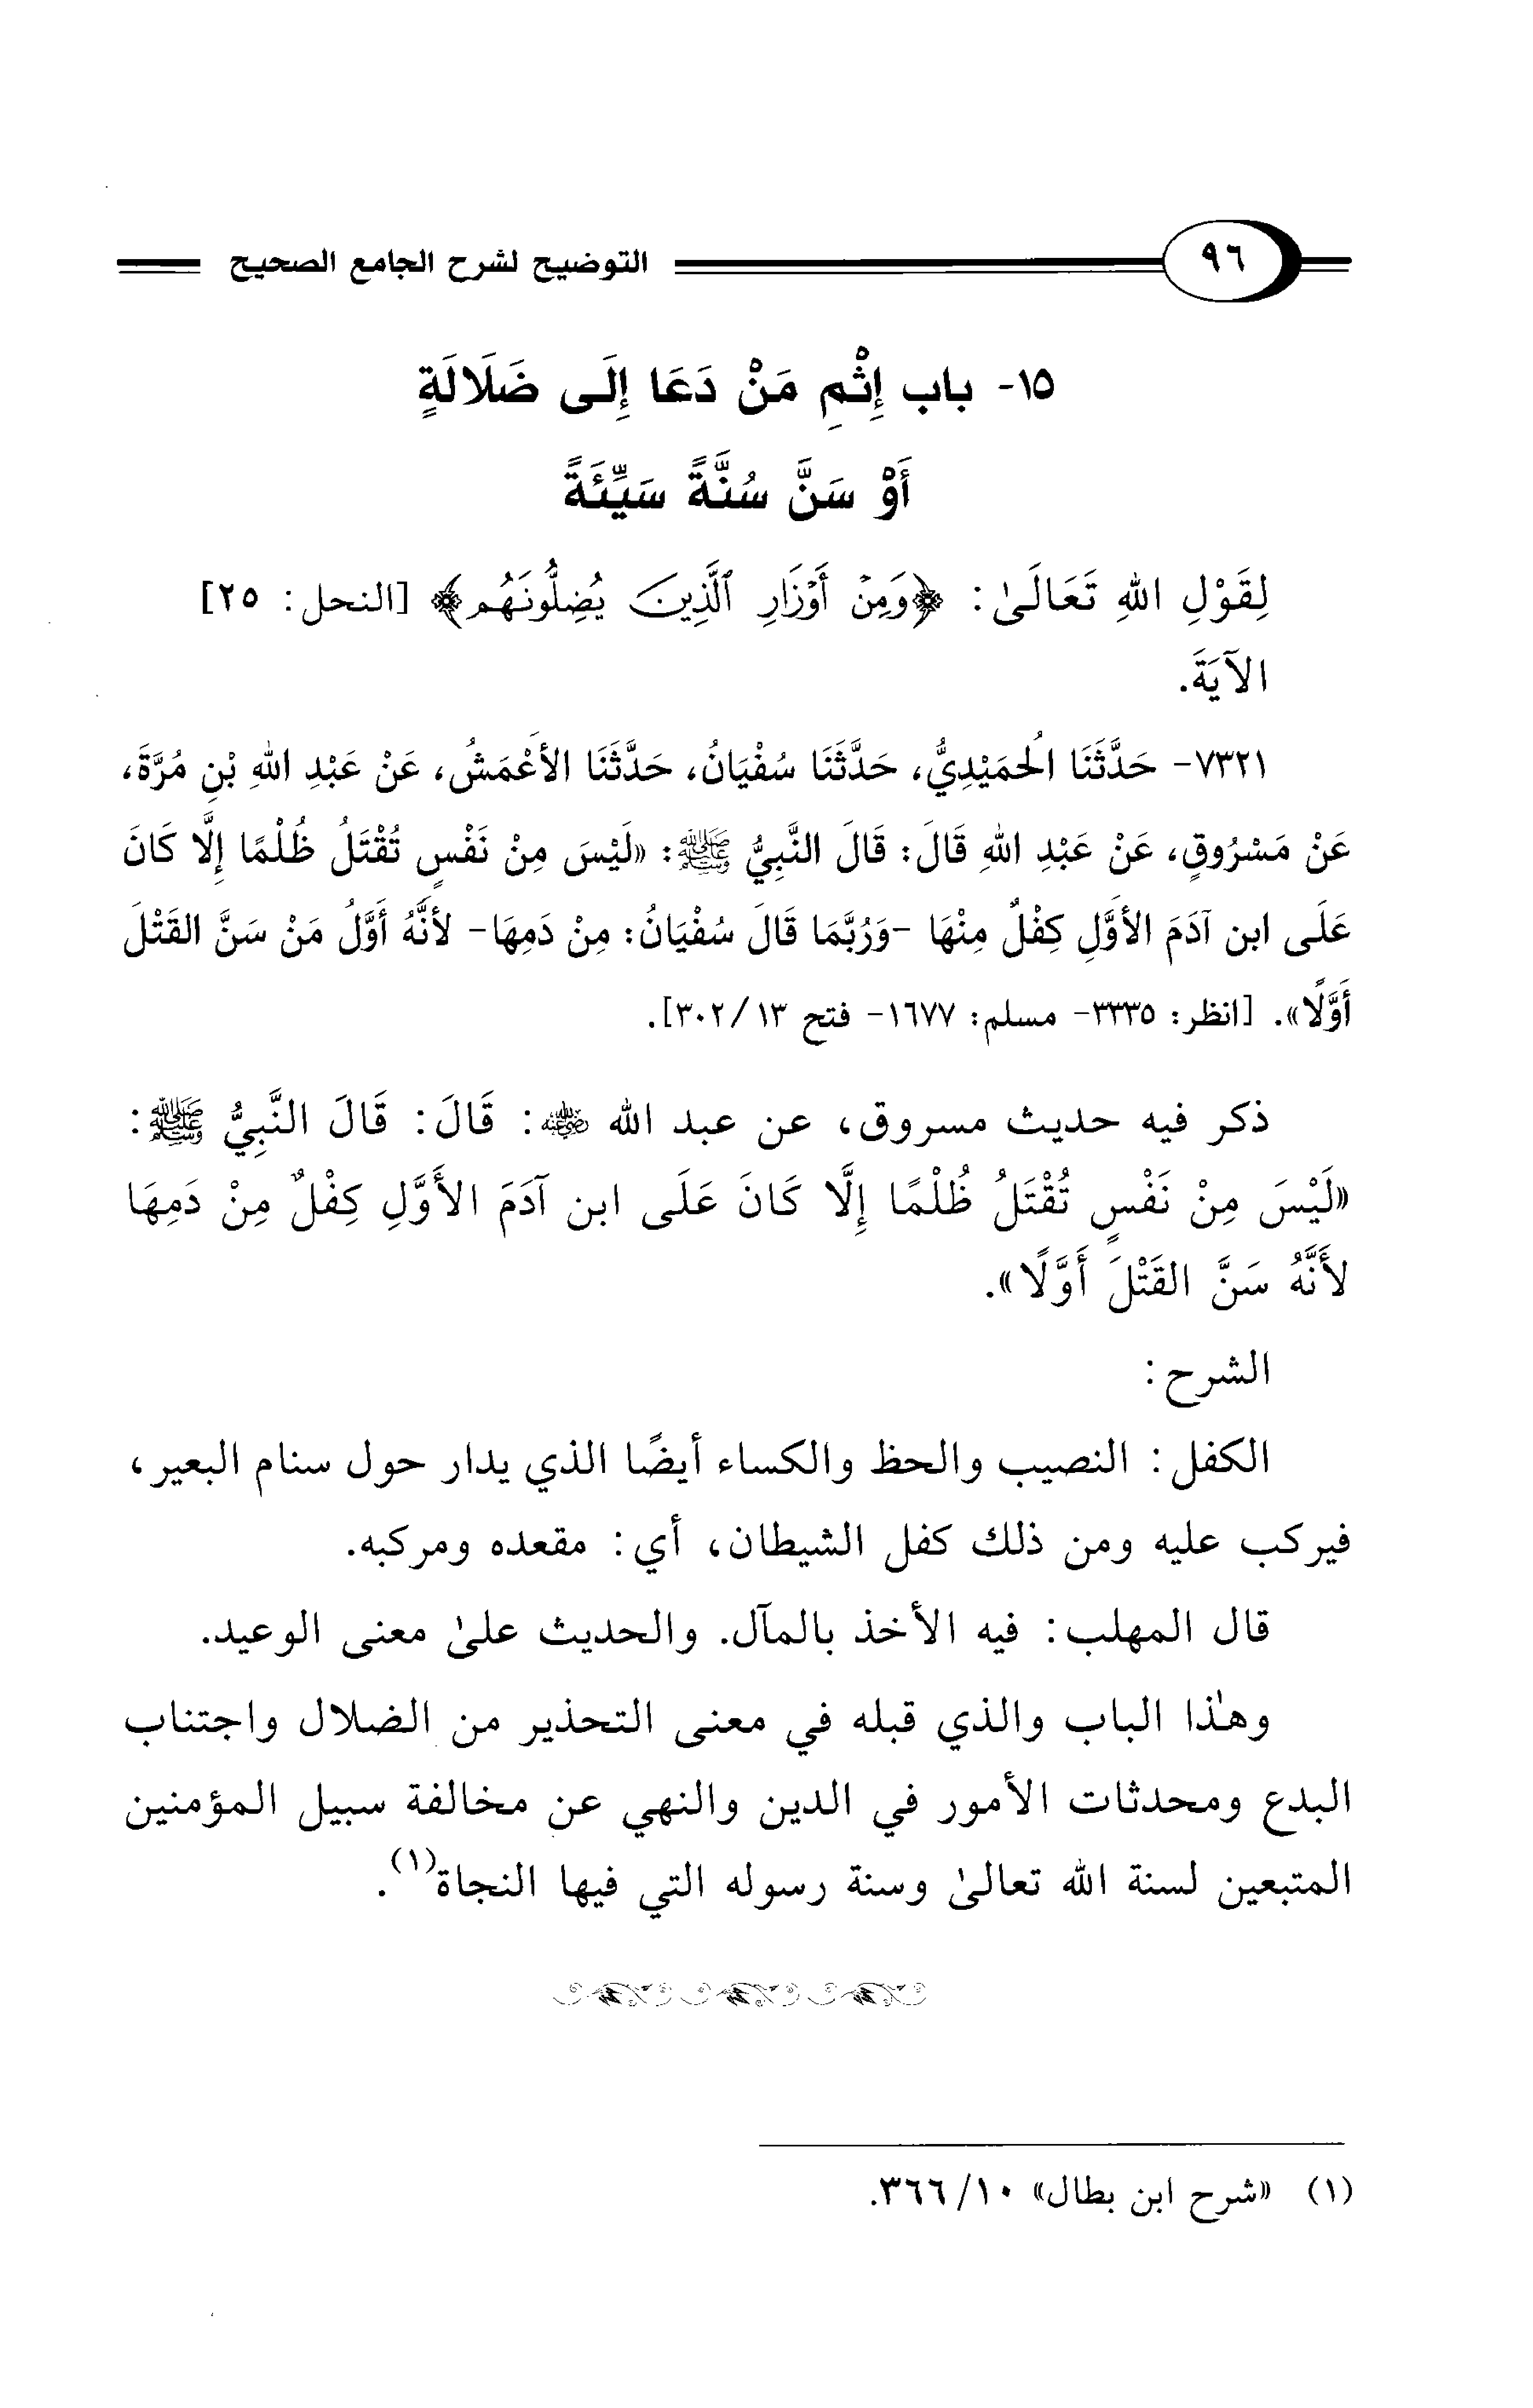 ٩٦ التوضيح لشرح الجامع الصحيح
١٥- باب إِثْمِ مَنْ دَعَا إِلَى ضَلَالَةٍ
أَوْ سَنَّ سُنَّةً سَيِّئَةً
لِقَوْلِ اللهِ تَعَالَىٰ: ﴿وَمِنْ أَوْزَارِ ٱلَّذِينَ يُضِلُّونَهُم﴾ [النحل: ٢٥]
الآيَةَ.
٧٣٢١- حَدَّثَنَا الُحمَيْدِيُّ، حَدَّثَنَا سُفْيَانُ، حَدَّثَنَا الأَعْمَشُ، عَنْ عَبْدِ اللهِ بْنِ مُرَّةَ،
عَنْ مَسْرُوقٍ، عَنْ عَبْدِ اللهِ قَالَ: قَالَ النَّبِيُّ ﷺ: «لَيْسَ مِنْ نَفْسٍ تُقْتَلُ ظُلْمًا إِلَّا كَانَ
عَلَى ابن آدَمَ الأَوَّلِ كِفْلٌ مِنْهَا -وَرُبَّمَا قَالَ سُفْيَانُ: مِنْ دَمِهَا- لأَنَّهُ أَوَّلُ مَنْ سَنَّ القَتْلَ
أَوَّلًا». [انظر: ٣٣٣٥- مسلم: ١٦٧٧- فتح ١٣/ ٣٠٢].
ذكر فيه حديث مسروق، عن عبد الله رضي الله عنه: قَالَ: قَالَ النَّبِيُّ ﷺ:
«لَيْسَ مِنْ نَفْسٍ تُقْتَلُ ظُلْمًا إِلَّا كَانَ عَلَى ابن آدَمَ الأَوَّلِ كِفْلٌ مِنْ دَمِهَا
لأَنَّهُ سَنَّ القَتْلَ أَوَّلًا».
الشرح:
الكفل: النصيب والحظ والكساء أيضًا الذي يدار حول سنام البعير،
فيركب عليه ومن ذلك كفل الشيطان، أي: مقعده ومركبه.
قال المهلب: فيه الأخذ بالمآل. والحديث علىٰ معنى الوعيد.
وهذا الباب والذي قبله في معنى التحذير من الضلال واجتناب
البدع ومحدثات الأمور في الدين والنهي عن مخالفة سبيل المؤمنين
المتبعين لسنة الله تعالىٰ وسنة رسوله التي فيها النجاة(١).
(١) «شرح ابن بطال» ١٠/ ٣٦٦.